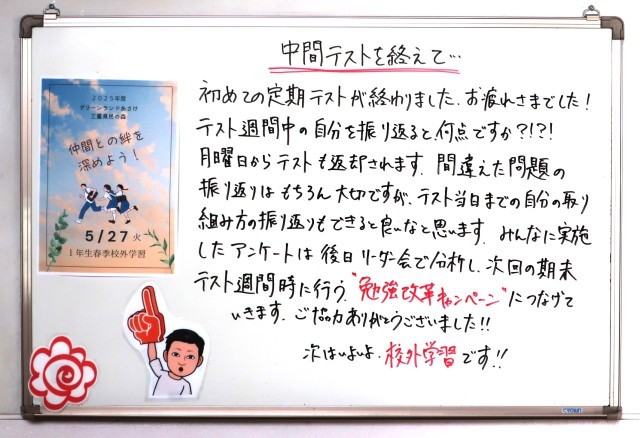 中間テストを終えて…
初めての定期テストが終わりました。お疲れさまでした!
テスト週間中の自分を振り返ると、何点ですか?!?!
月曜日からテストも返却されます。間違えた問題の
振り返りはもちろん大切ですが、テスト当日までの自分の取り
組み方の振り返りもできると良いなと思います。みんなに実施
したアンケートは後日リーダー会で分析し、次回の期末
テスト週間時に行う、"勉強改革キャンペーン"につなげて
いきます。ご協力ありがとうございました!!
次はいよいよ、校外学習です!!
2025年度
グリーンランドあさけ
三重県民の森
仲間との絆を
深めよう!
5/27 火
1年生春季校外学習
CROWN